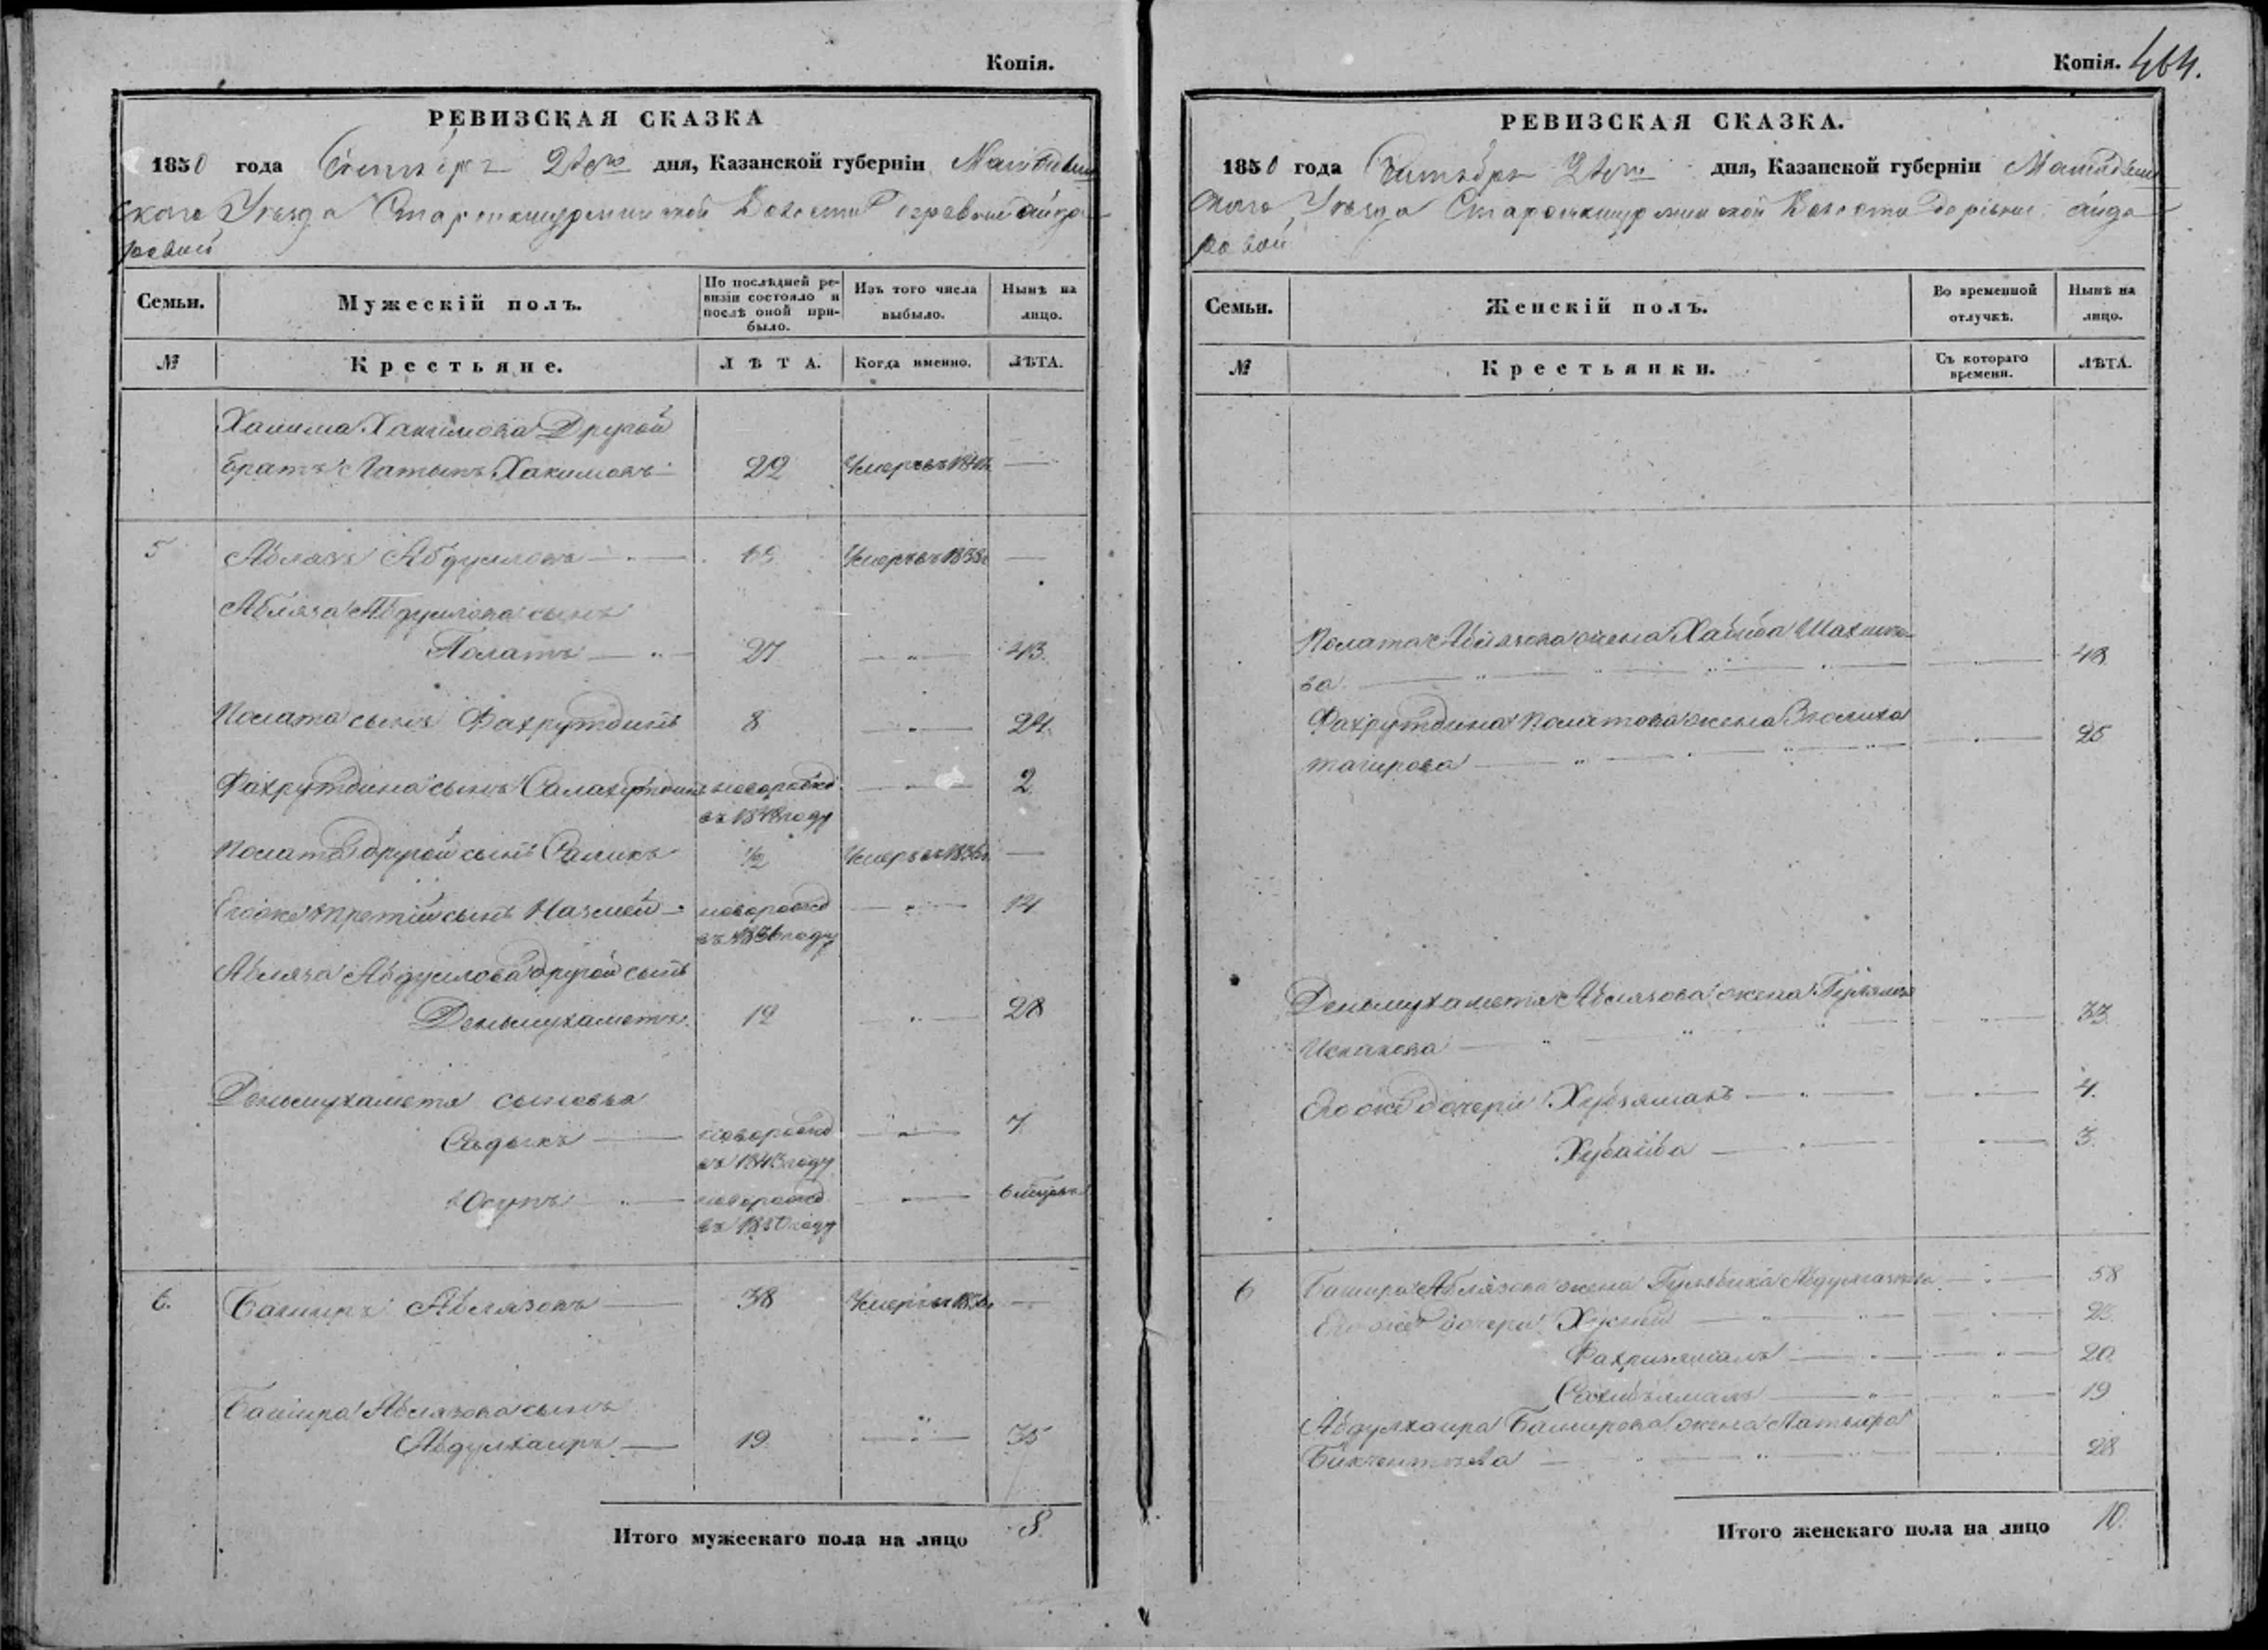 Копія.
РЕВИЗСКАЯ СКАЗКА
1850 года Сентября 2го дня, Казанской губерніи Мамадыш
скаго Уезда Волости Деревни Айда
ровой
Семьи. Мужескій полъ. По послѣдней ре-
визіи состояло и
послѣ оной при-
было. Изъ того числа
выбыло. Нынѣ на
лицо.
№ Крестьяне. ЛѢТА. Когда именно. ЛѢТА.
Халима Хакимова Другой
братъ Латыпъ Хакимовъ 22 Умеръ въ —
5 Аблязъ Абдуловъ — Умеръ въ 1838г —
Абляза Абдулова сынъ
Полатъ — 27 — 43.
Полата сынъ Фахрутдинъ 8 — 24.
Фахрутдина сынъ Салахутдинъ новорожд — 2
въ 1848 году
Полата другой сынъ Салихъ 1/2 Умеръ въ 1836г —
Егоже третій сынъ новорожд — 14
въ 1836 году
Абляза Абдулова другой сынъ
Деньмухаметъ 12 — 28
Деньмухаметя сыновья
Садыкъ — новорожд — 7.
въ 1843 году
Юсупъ — новорожд — 6 месяцовъ
въ 1850 году
6. Баширъ Аблязовъ — 38 Умеръ въ —
Башира Аблязова сынъ
Абдулхаиръ — 19 — 35
Итого мужескаго пола на лицо 8.
Копія. 464.
РЕВИЗСКАЯ СКАЗКА.
1850 года Сентября 2го дня, Казанской губерніи Мамадыш
скаго Уезда Волости Деревни Айда
ровой
Семьи. Женскій полъ. Во временной
отлучкѣ. Нынѣ на
лицо.
№ Крестьянки. Съ котораго
времени. ЛѢТА.
Полата Аблязова жена Хабиба
ва — 48
Фахрутдина Полатова жена
тагирова — 25
Деньмухаметя Аблязова жена
Исхакова — 33
Егоже дочери Хубзямалъ — 4.
Хубайба — 3.
6 Башира Аблязова жена Гульбика — 58
Егоже дочери — 23
Фахризямалъ — 20
Сахибзямалъ — 19
Абдулхаира Баширова жена Латыфа
Бикчентаева — 28
Итого женскаго пола на лицо 10.